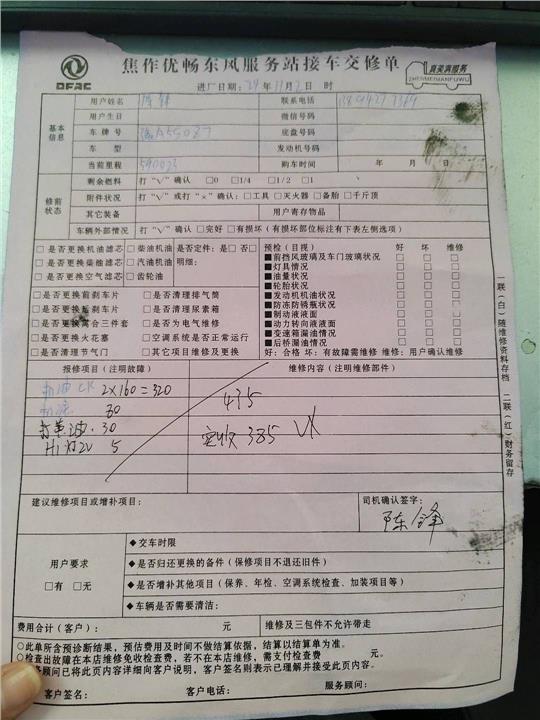 DFAC
焦作优畅东风服务站接车交修单
真美满服务
ZHENMEIMANFUWU
进厂日期：24年11月2日 时
基本信息
用户姓名 陈锋 联系电话
用户生日 微信号码
车牌号 底盘号码
车 型 发动机号码
当前里程 590023 购车时间 年 月 日
修前状态
剩余燃料 打“V”确认 □0 □1/4 □1/2 □1
附件状况 打“V”或打“×”确认：□工具□灭火器□备胎□千斤顶
其它装备 用户寄存物品
车辆外部情况 打“V”确认□完好□有损坏(有损坏部位标注有下表左侧选项)
□是否更换机油滤芯 □柴油机油 是否定件：是□否□
□是否更换柴油滤芯 □汽油机油 明细：
□是否更换空气滤芯 □齿轮油
□是否更换前刹车片 □是否清理排气筒
□是否更换后刹车片 □是否清理尿素箱
□是否更换离合三件套 □是否为电气维修
□是否更换火花塞 □空调系统是否正常运行
□是否清理节气门 □其它项目维修及更换
预检(目视) 好 坏 维修
■前挡风玻璃及车门玻璃状况 □ □ □
■灯具情况 □ □ □
■油量状况 □ □ □
■轮胎状况 □ □ □
■发动机机油状况 □ □ □
■防冻防锈瓶状况 □ □ □
■制动液液面 □ □ □
■动力转向液液面 □ □ □
■变速箱漏油情况 □ □ □
■后桥漏油情况 □ □ □
好：合格 坏：有故障需维修 维修：用户确认维修
报修项目(注明故障) 维修内容(注明维修部件)
机油 CK 2×160=320
机滤 80
30
H1灯2V 5
435
实收 385
建议维修项目或增补项目：
司机确认签字：
陈锋
用户要求
□有 □无
◆交车时限
◆是否归还更换的备件(保修项目不退还旧件)
◆是否增补其他项目(保养、年检、空调系统检查、加装项目等)
◆车辆是否需要清洁：
费用合计(客户)： 元 维修及三包件不允许带走
○此单所含预诊断结果，预估费用及时间不做结算依据，结算以结算单为准。
○检查出故障在本店维修免收检查费，若不在本店维修，需支付检查费 元。
务顾问已将此页内容详细向客户说明，客户签名则表示已理解并接受此页内容。
客户签名： 客户电话： 服务顾问：
一联(白)随维修资料存档 二联(红)财务留存